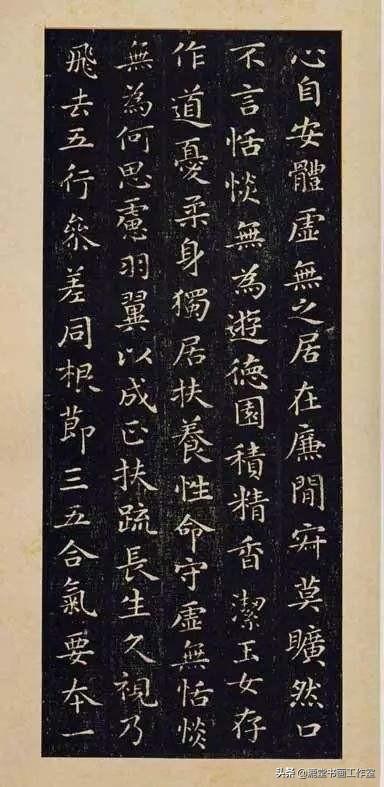 心自安體虛無之居在廉間寂莫曠然口
不言恬惔無為遊德園積精香潔玉女存
作道憂柔身獨居扶養性命守虛無恬惔
無為何思慮羽翼以成正扶疏長生久視乃
飛去五行參差同根節三五合氣要本一
头条@墨堂书画工作室